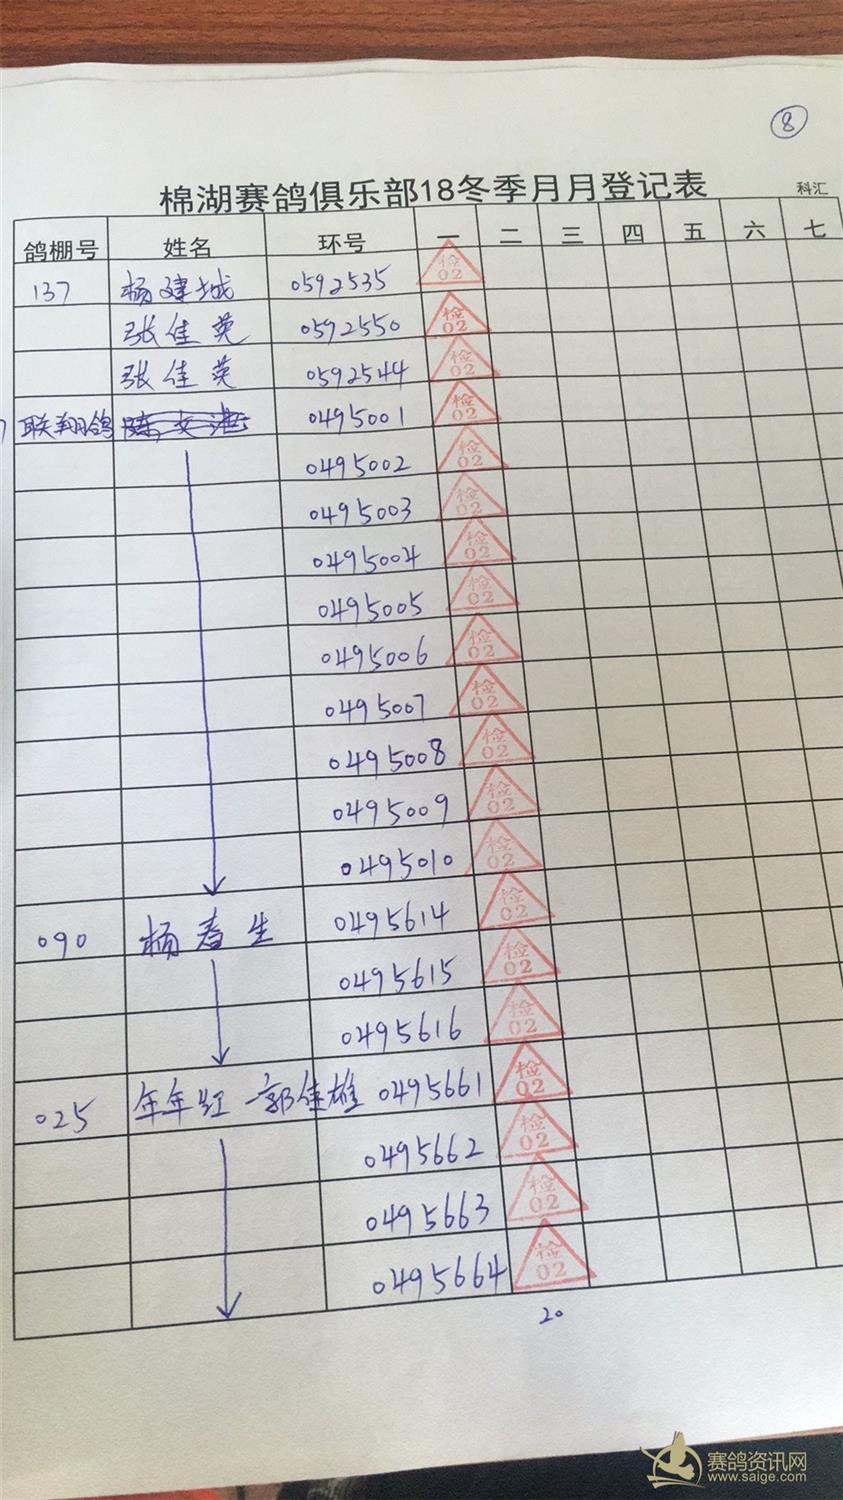 8
棉湖赛鸽俱乐部18冬季月月登记表 科汇
鸽棚号 姓名 环号 一 二 三 四 五 六 七
137 杨建城 0592535 检02
张佳英 0592550 检02
张佳英 0592544 检02
联翔鸽 0495001 检02
0495002 检02
0495003 检02
0495004 检02
0495005 检02
0495006 检02
0495007 检02
0495008 检02
0495009 检02
0495010 检02
090 杨春生 0495614 检02
0495615 检02
0495616 检02
025 年年红-郭佳雄 0495661 检02
0495662 检02
0495663 检02
0495664 检02
20
赛鸽资讯网
www.saige.com